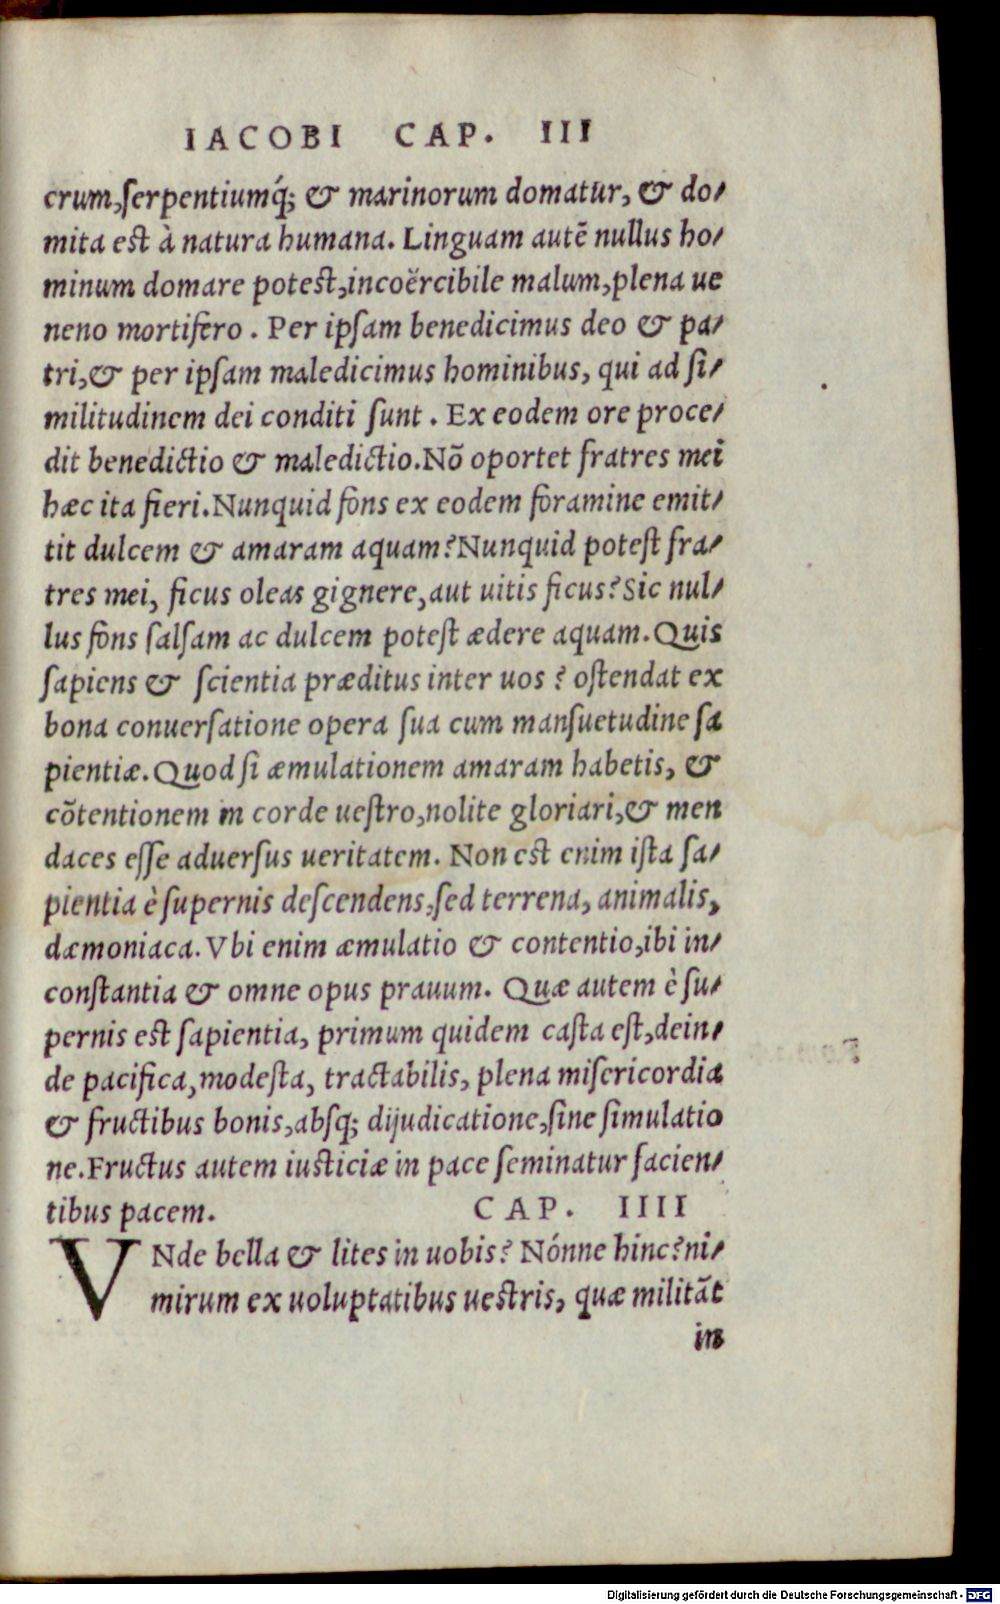 IACOBI CAP. III
crum,ſerpentiumq́; & marinorum domatur, & do-
mita est à natura humana. Linguam autē nullus ho-
minum domare potest,incoërcibile malum,plena ue
neno mortifero . Per ipſam benedicimus deo & pa-
tri,& per ipſam maledicimus hominibus, qui ad ſi-
militudinem dei conditi ſunt . Ex eodem ore proce-
dit benedictio & maledictio.Nō oportet fratres mei
hæc ita fieri.Nunquid fons ex eodem foramine emit-
tit dulcem & amaram aquam?Nunquid poteſt fra-
tres mei, ficus oleas gignere,aut uitis ficus?Sic nul-
lus fons ſalſam ac dulcem poteſt ædere aquam.Quis
ſapiens & ſcientia præditus inter uos ? oſtendat ex
bona conuerſatione opera ſua cum manſuetudine ſa
pientiæ.Quod ſi æmulationem amaram habetis, &
cōtentionem in corde ueſtro,nolite gloriari,& men
daces eſſe aduerſus ueritatem. Non est enim iſta ſa-
pientia è ſupernis deſcendens,ſed terrena, animalis,
dæmoniaca. Vbi enim æmulatio & contentio,ibi in-
conſtantia & omne opus prauum. Quæ autem è ſu-
pernis est ſapientia, primum quidem caſta eſt,dein-
de pacifica,modeſta, tractabilis, plena miſericordia
& fructibus bonis,abſq; dijudicatione,ſine ſimulatio
ne.Fructus autem iusticiæ in pace ſeminatur facien-
tibus pacem. CAP. IIII
VNde bella & lites in uobis? Nónne hinc?ni-
mirum ex uoluptatibus uestris, quæ militāt
in
Digitalisierung gefördert durch die Deutsche Forschungsgemeinschaft - DFG